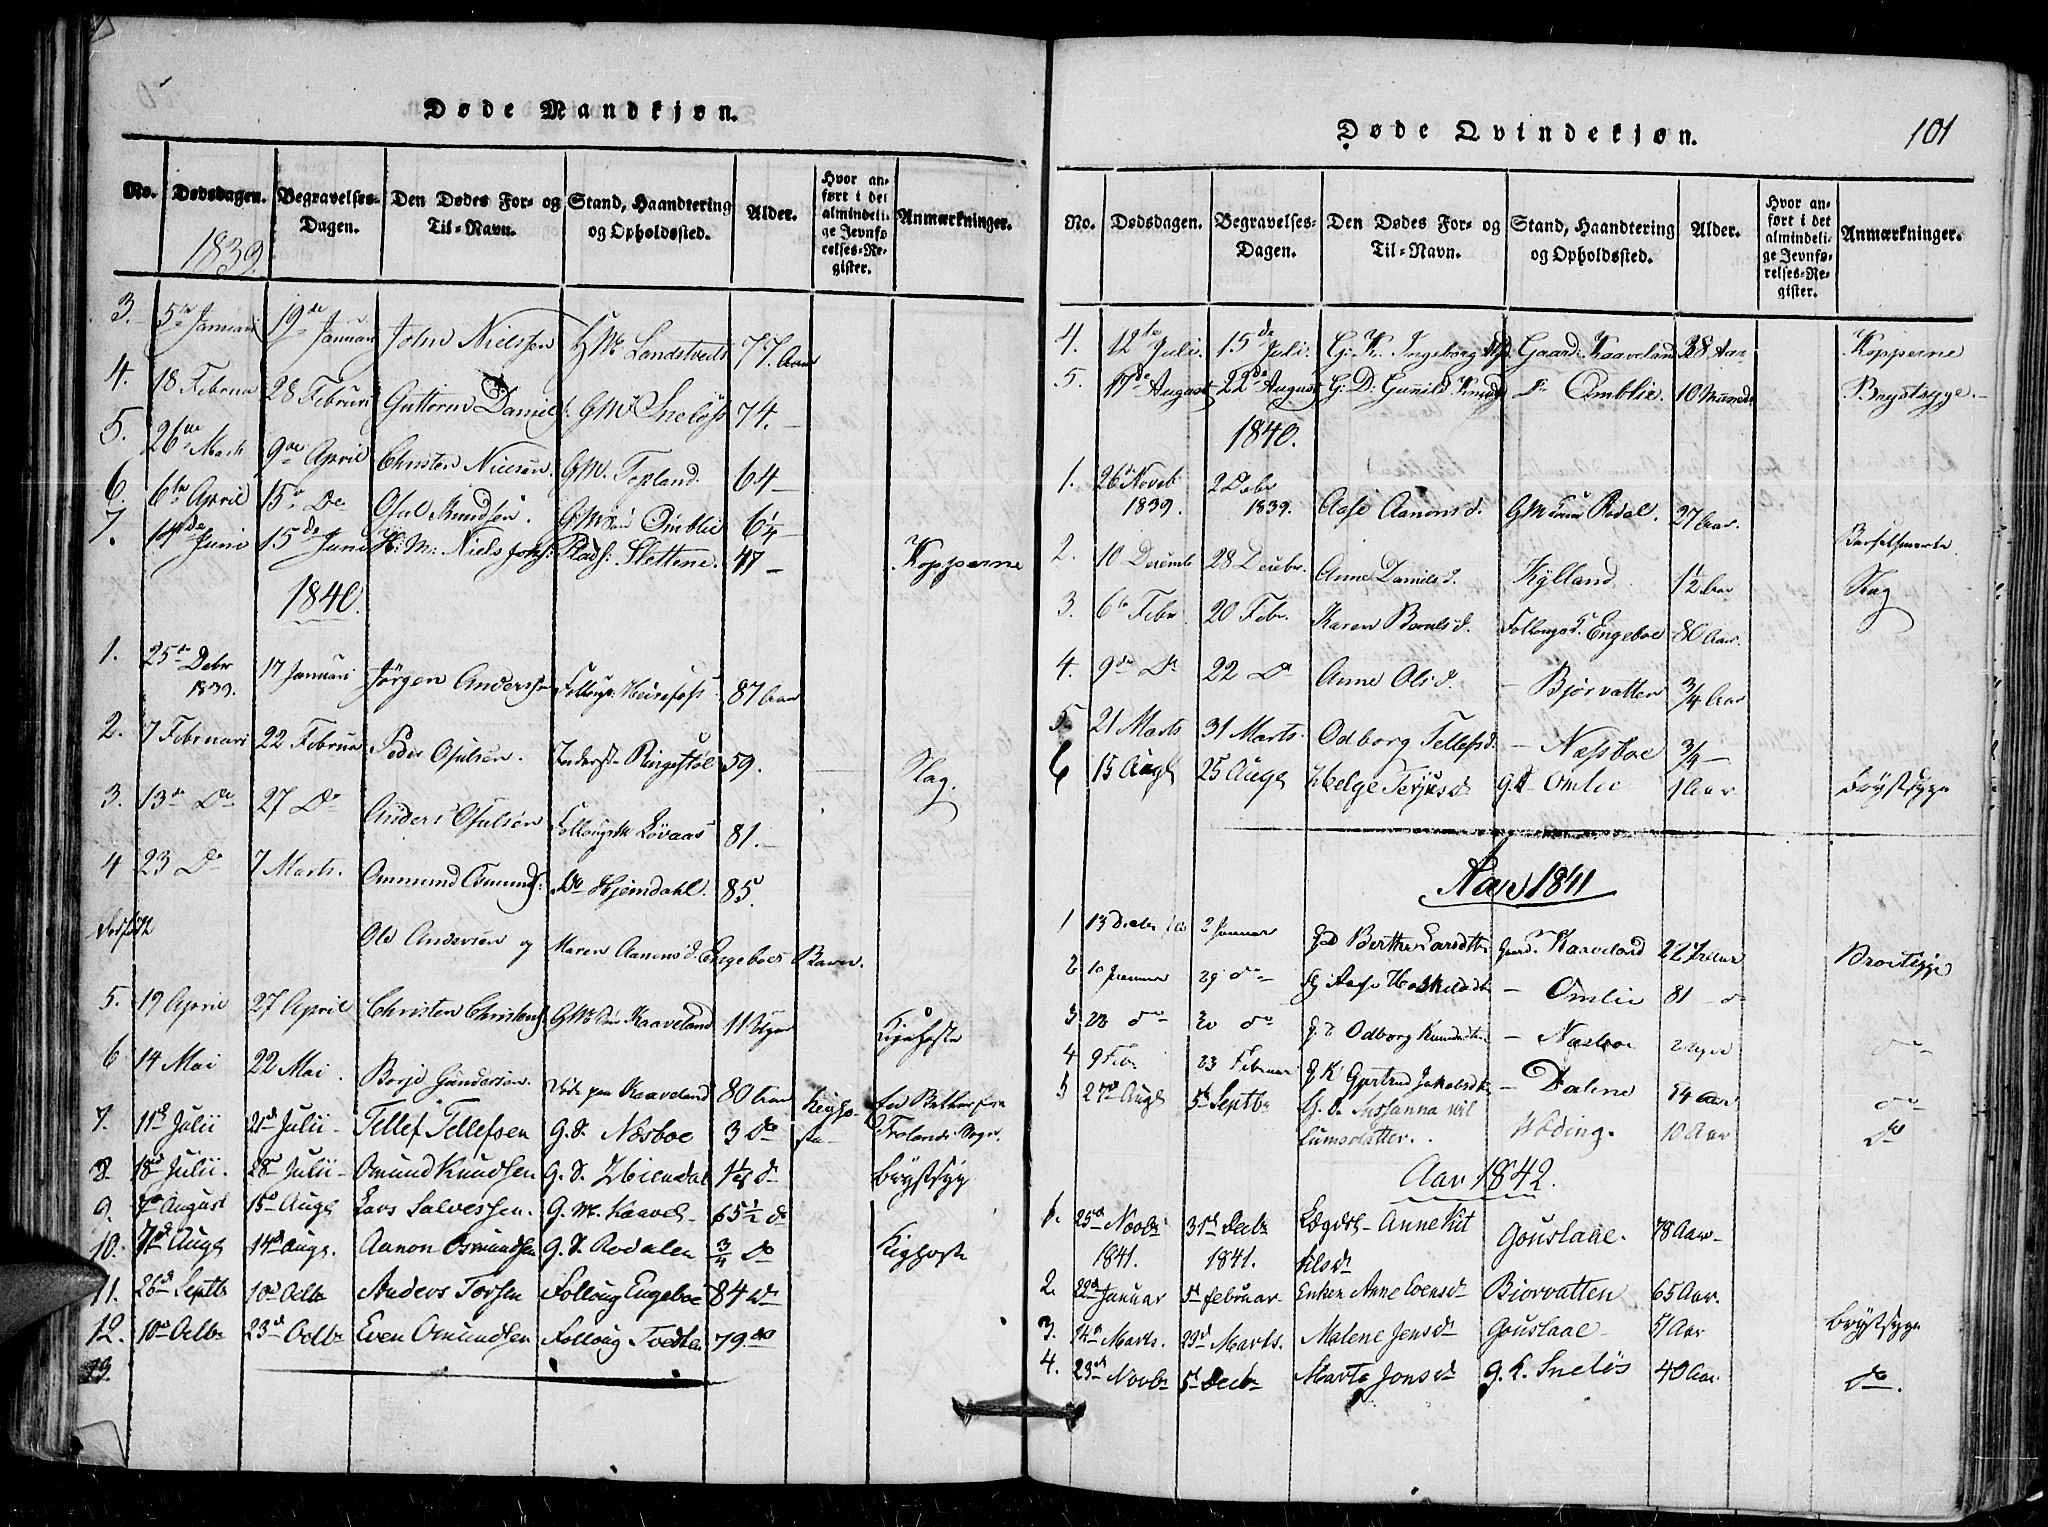 Døde Mandkjøn.
No. Dødsdagen. Begravelses-Dagen. Den Dødes For- og Til-Navn. Stand, Haandtering og Opholdssted. Alder. Hvor anført i det almindelige Jevnførelses-Register. Anmærkninger.
1839.
3. 5te Januari 19de Januari John Nielssen G.M. Landstveds 77 Aar
4. 18 Februa 28 Februari Guttorm Daniels. GM. Sneløss 74.—
5. 26de Marts 9de April Christen Nielsen. GM. Tepland. 64—
6. 6te April 15de De Osul Knudsen. G.M. Søn Omblie 6¼
7. 14de Juni 15de Juni H. M: Niels Johs: Plads: Slettene. 47— Kopperne
1840.
1. 25de Debr 1839. 17 Januari Jørgen Anderssen Follougs. Heirefoss. 87 Aar
2. 7 Februari 22 Februa Peder Osulsen. Inderst Ringestøl 59. Slag.
3. 13de De 27 Do Anders Osulsen Follougsm Løvaas 81.—
4 23 Do 7 Marts. Ommund Osmunds: Do Hjemdahl. 85.
Dødfødt Ole Andersen og Maren Aanensd. Engeboes Barn.
5. 19 April 27 April Christen Christens. GM Søn Kaaveland 11 Uger Kighoste
6 14 Mai 22 Mai. Borje Gundersen. Døde paa Kaaveland 80 Aar
7. 11d Julii 21d Julii- Tellef Tellefsen G.S. Næsboe 3 Do Kighoste Frolands Sogn.
8. 18d Julii. 28d Julii- Omund Knudsen G. S. Hiemdal 1¼ d brystsyg
9. 7de August 15d Augt Lars Salvessen. G. M. Kaavel- 65½ do
10. 7d Augt 14d Augt. Aanon Osmundsen G. S. Rodalen ¾ Do Kighoste
11. 26d Septb 10d Octbr Anders Torsen Folloug Engeboe 84 do
12. 10d Octbr 23d Octbr Even Omundsen Folloug Tvedten 79 do
13
Døde Qvindekjøn.
101
No. Dødsdagen. Begravelses-Dagen. Den Dødes For- og Til-Navn. Stand, Haandtering og Opholdssted. Alder. Hvor anført i det almindelige Jevnførelses-Register. Anmærkninger.
4. 12te Juli. 15de Juli. G: K. Ingeborg Gaard. Kaaveland 38 Aar Kopperne
5. 17de August 22de August G: D: Gunild Knuds Do Omblie. 10 Maaneder Brystsyge.—
1840.
1. 26 Novb 1839. 2 Debr 1839. Aase Aanons d. GM Kone Rodal. 27 Aar. Barselsmerte
2. 10 Decemb 28 Decbr. Anne Daniels d. Kylland ½ Aar Slag
3. 6te Febr. 20 Febr. Karen Berntsd. Follougsd. Engeboe 80 Aar.
4. 9de Do 22 Do Anne Olsd. — Bjorvatten ¾ Aar
5. 21 Marts 31 Marts. Odborg Tellefsd. — Næssboe ¾—
6 15 Augt 25 Augt Helge Terjesd. G.D. Omlie 1 Aar brystsyge
Aar 1841
1 13 Decbr 2 Januar Berthe Larsdtr. Gaard. Kaaveland 22 Aar Brystsyge
2 10 Januar 29 do Aase Haskelsdtr — Omlie 81 — do
3 22 do 30 do G. D Odborg Knudsdtr — Næsboe 2 Uger do
4 9 Feb 23 Februar G K Gjertrud Jakobsdtr — Dalene 44 Aar do
5 27d Augt 5d Septbr G. D. Sussanna Villumsdatter. Wæding. 10 Aar Do
Aar 1842.
1. 25d Novbr 1841. 31d Decbr 1841. Lægdsl- Anne Kittilsdr Gouslaae. 78 Aar-
2. 22d Januar 5d februar Enken Anne Evensdr Biorvatten 65 Aar.
3. 14d Marts. 23d Marts. Malene Jensdr Gouslaae- 51 Aar brystsyge
4. 23d Novbr 5d Decbr Marte Jonsdr G. K. Sneløs 40 Aar do.